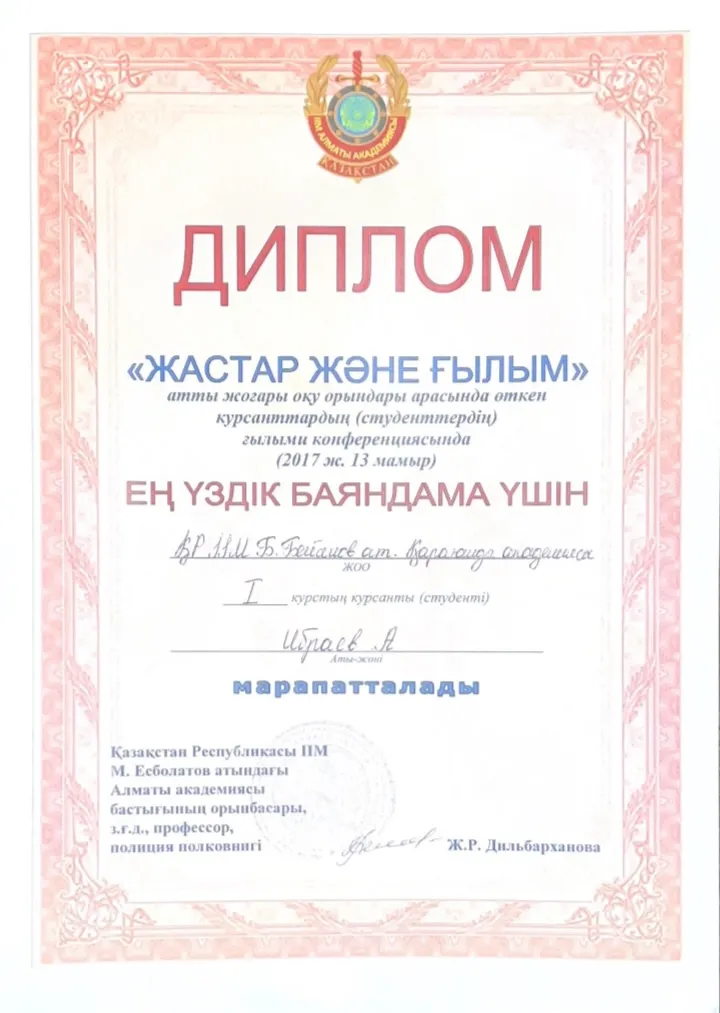 ІІМ АЛМАТЫ АКАДЕМИЯСЫ
ҚАЗАҚСТАН
ДИПЛОМ
«ЖАСТАР ЖӘНЕ ҒЫЛЫМ»
атты жоғары оқу орындары арасында өткен
курсанттардың (студенттердің)
ғылыми конференциясында
(2017 ж. 13 мамыр)
ЕҢ ҮЗДІК БАЯНДАМА ҮШІН
ҚР ІІМ Б. Бейсенов ат. Қарағанды академиясы
ЖОО
I курстың курсанты (студенті)
Ибраев А
Аты-жөні
марапатталады
Қазақстан Республикасы ІІМ
М. Есболатов атындағы
Алматы академиясы
бастығының орынбасары,
з.ғ.д., профессор,
полиция полковнигі Ж.Р. Дильбарханова